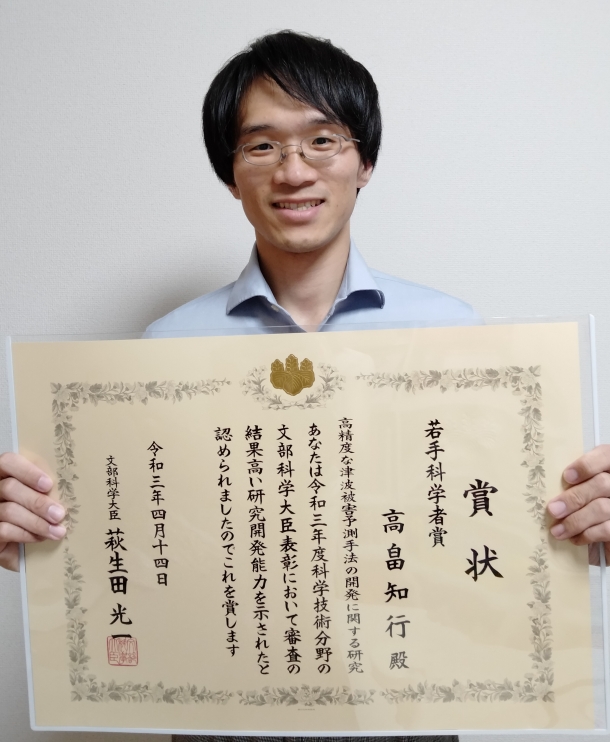 賞状
若手科学者賞
高畠知行殿
高精度な津波被害予測手法の開発に関する研究
あなたは令和三年度科学技術分野の
文部科学大臣表彰において審査の
結果高い研究開発能力を示されたと
認められましたのでこれを賞します
令和三年四月十四日
文部科学大臣 萩生田光一